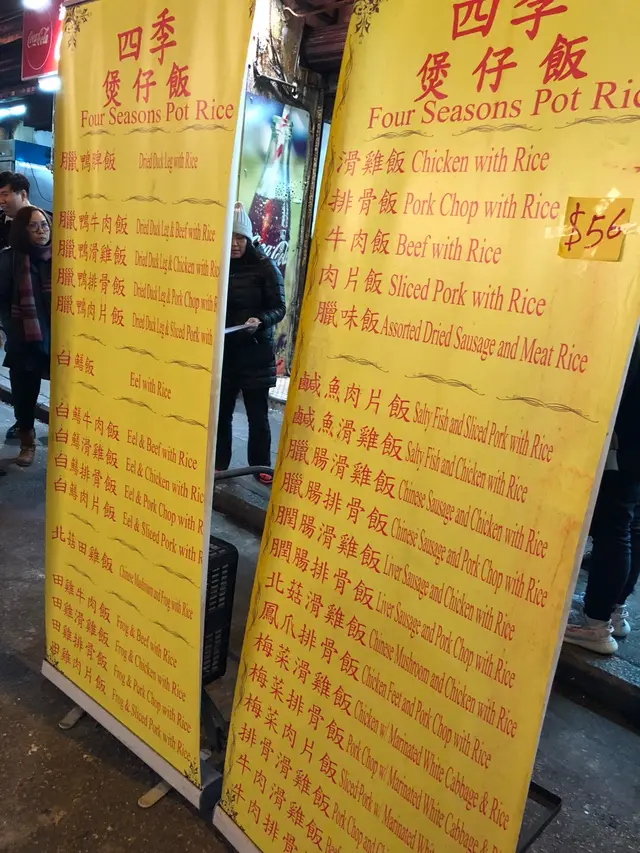 Coca-Cola
四季
煲仔飯
Four Seasons Pot Rice
臘鴨髀飯 Dried Duck Leg with Rice
臘鴨牛肉飯 Dried Duck Leg & Beef with Rice
臘鴨滑雞飯 Dried Duck Leg & Chicken with Ric
臘鴨排骨飯 Dried Duck Leg & Pork Chop with
臘鴨肉片飯 Dried Duck Leg & Sliced Pork with
白鱔飯 Eel with Rice
白鱔牛肉飯 Eel & Beef with Rice
白鱔滑雞飯 Eel & Chicken with Rice
白鱔排骨飯 Eel & Pork Chop with R
白鱔肉片飯 Eel & Sliced Pork with R
北菇田雞飯 Chinese Mushroom and Frog with Rice
田雞牛肉飯 Frog & Beef with Rice
田雞滑雞飯 Frog & Chicken with Rice
田雞排骨飯 Frog & Pork Chop with Rice
田雞肉片飯 Frog & Sliced Pork with Rice
四季
煲仔飯
Four Seasons Pot Ric
滑雞飯 Chicken with Rice
排骨飯 Pork Chop with Rice
$56
牛肉飯 Beef with Rice
肉片飯 Sliced Pork with Rice
臘味飯 Assorted Dried Sausage and Meat Rice
鹹魚肉片飯 Salty Fish and Sliced Pork with Rice
鹹魚滑雞飯 Salty Fish and Chicken with Rice
臘腸滑雞飯 Chinese Sausage and Chicken with Rice
臘腸排骨飯 Chinese Sausage and Pork Chop with Rice
膶腸滑雞飯 Liver Sausage and Chicken with Rice
膶腸排骨飯 Liver Sausage and Pork Chop with Rice
北菇滑雞飯 Chinese Mushroom and Chicken with Rice
鳳爪排骨飯 Chicken Feet and Pork Chop with Rice
梅菜滑雞飯 Chicken w/ Marinated White Cabbage & Rice
梅菜排骨飯 Pork Chop w/ Marinated White Cabbage & Rice
梅菜肉片飯 Sliced Pork w/ Marinated White Cabbage &
排骨滑雞飯 Pork Chop and
牛肉滑雞飯 Beef
牛肉排骨